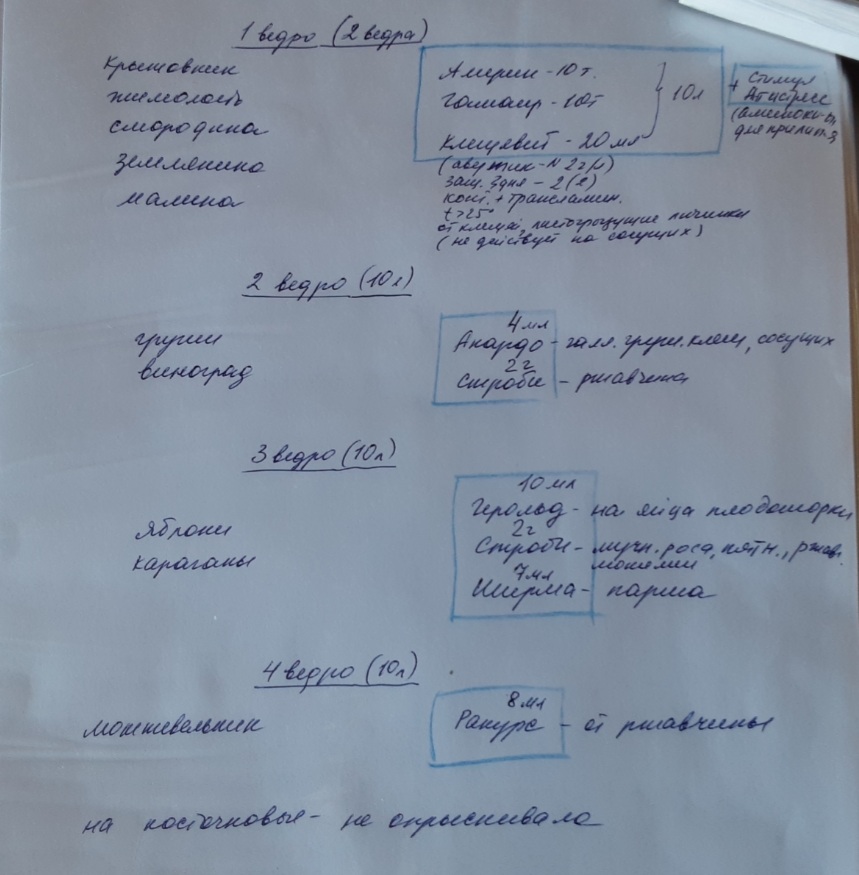 1 ведро (2 ведра)
Крыжовник
жимолость
смородина
земляника
малина
Алирин - 10т.
Гамаир - 10т
Клещевит - 20 мл
10л
+ Стимул
Антистресс
(авертин-N 2г/л)
защ. 3дня - 2(2)
конт. + трансламин.
t >25°
от клещей, листогрызущие личинки
(не действует на сосущих)
2 ведро (10л)
груши
виноград
4 мл
Акардо - галл. груш. клещ, сосущих
2г
Строби - ржавчина
3 ведро (10л)
Яблони
караганы
10 мл
Герольд - на яйца плодожорки
2г
Строби - мучн. роса, пятн., ржав.
7мл
Ширма - парша
4 ведро (10л)
можжевельник
8 мл
Ракурс - от ржавчины
на косточковые - не опрыскивала